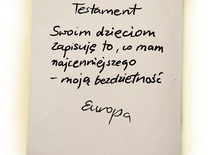 Testament
Swoim dzieciom
zapisuję to, co mam
najcenniejszego
- moją bezdzietność
Europa